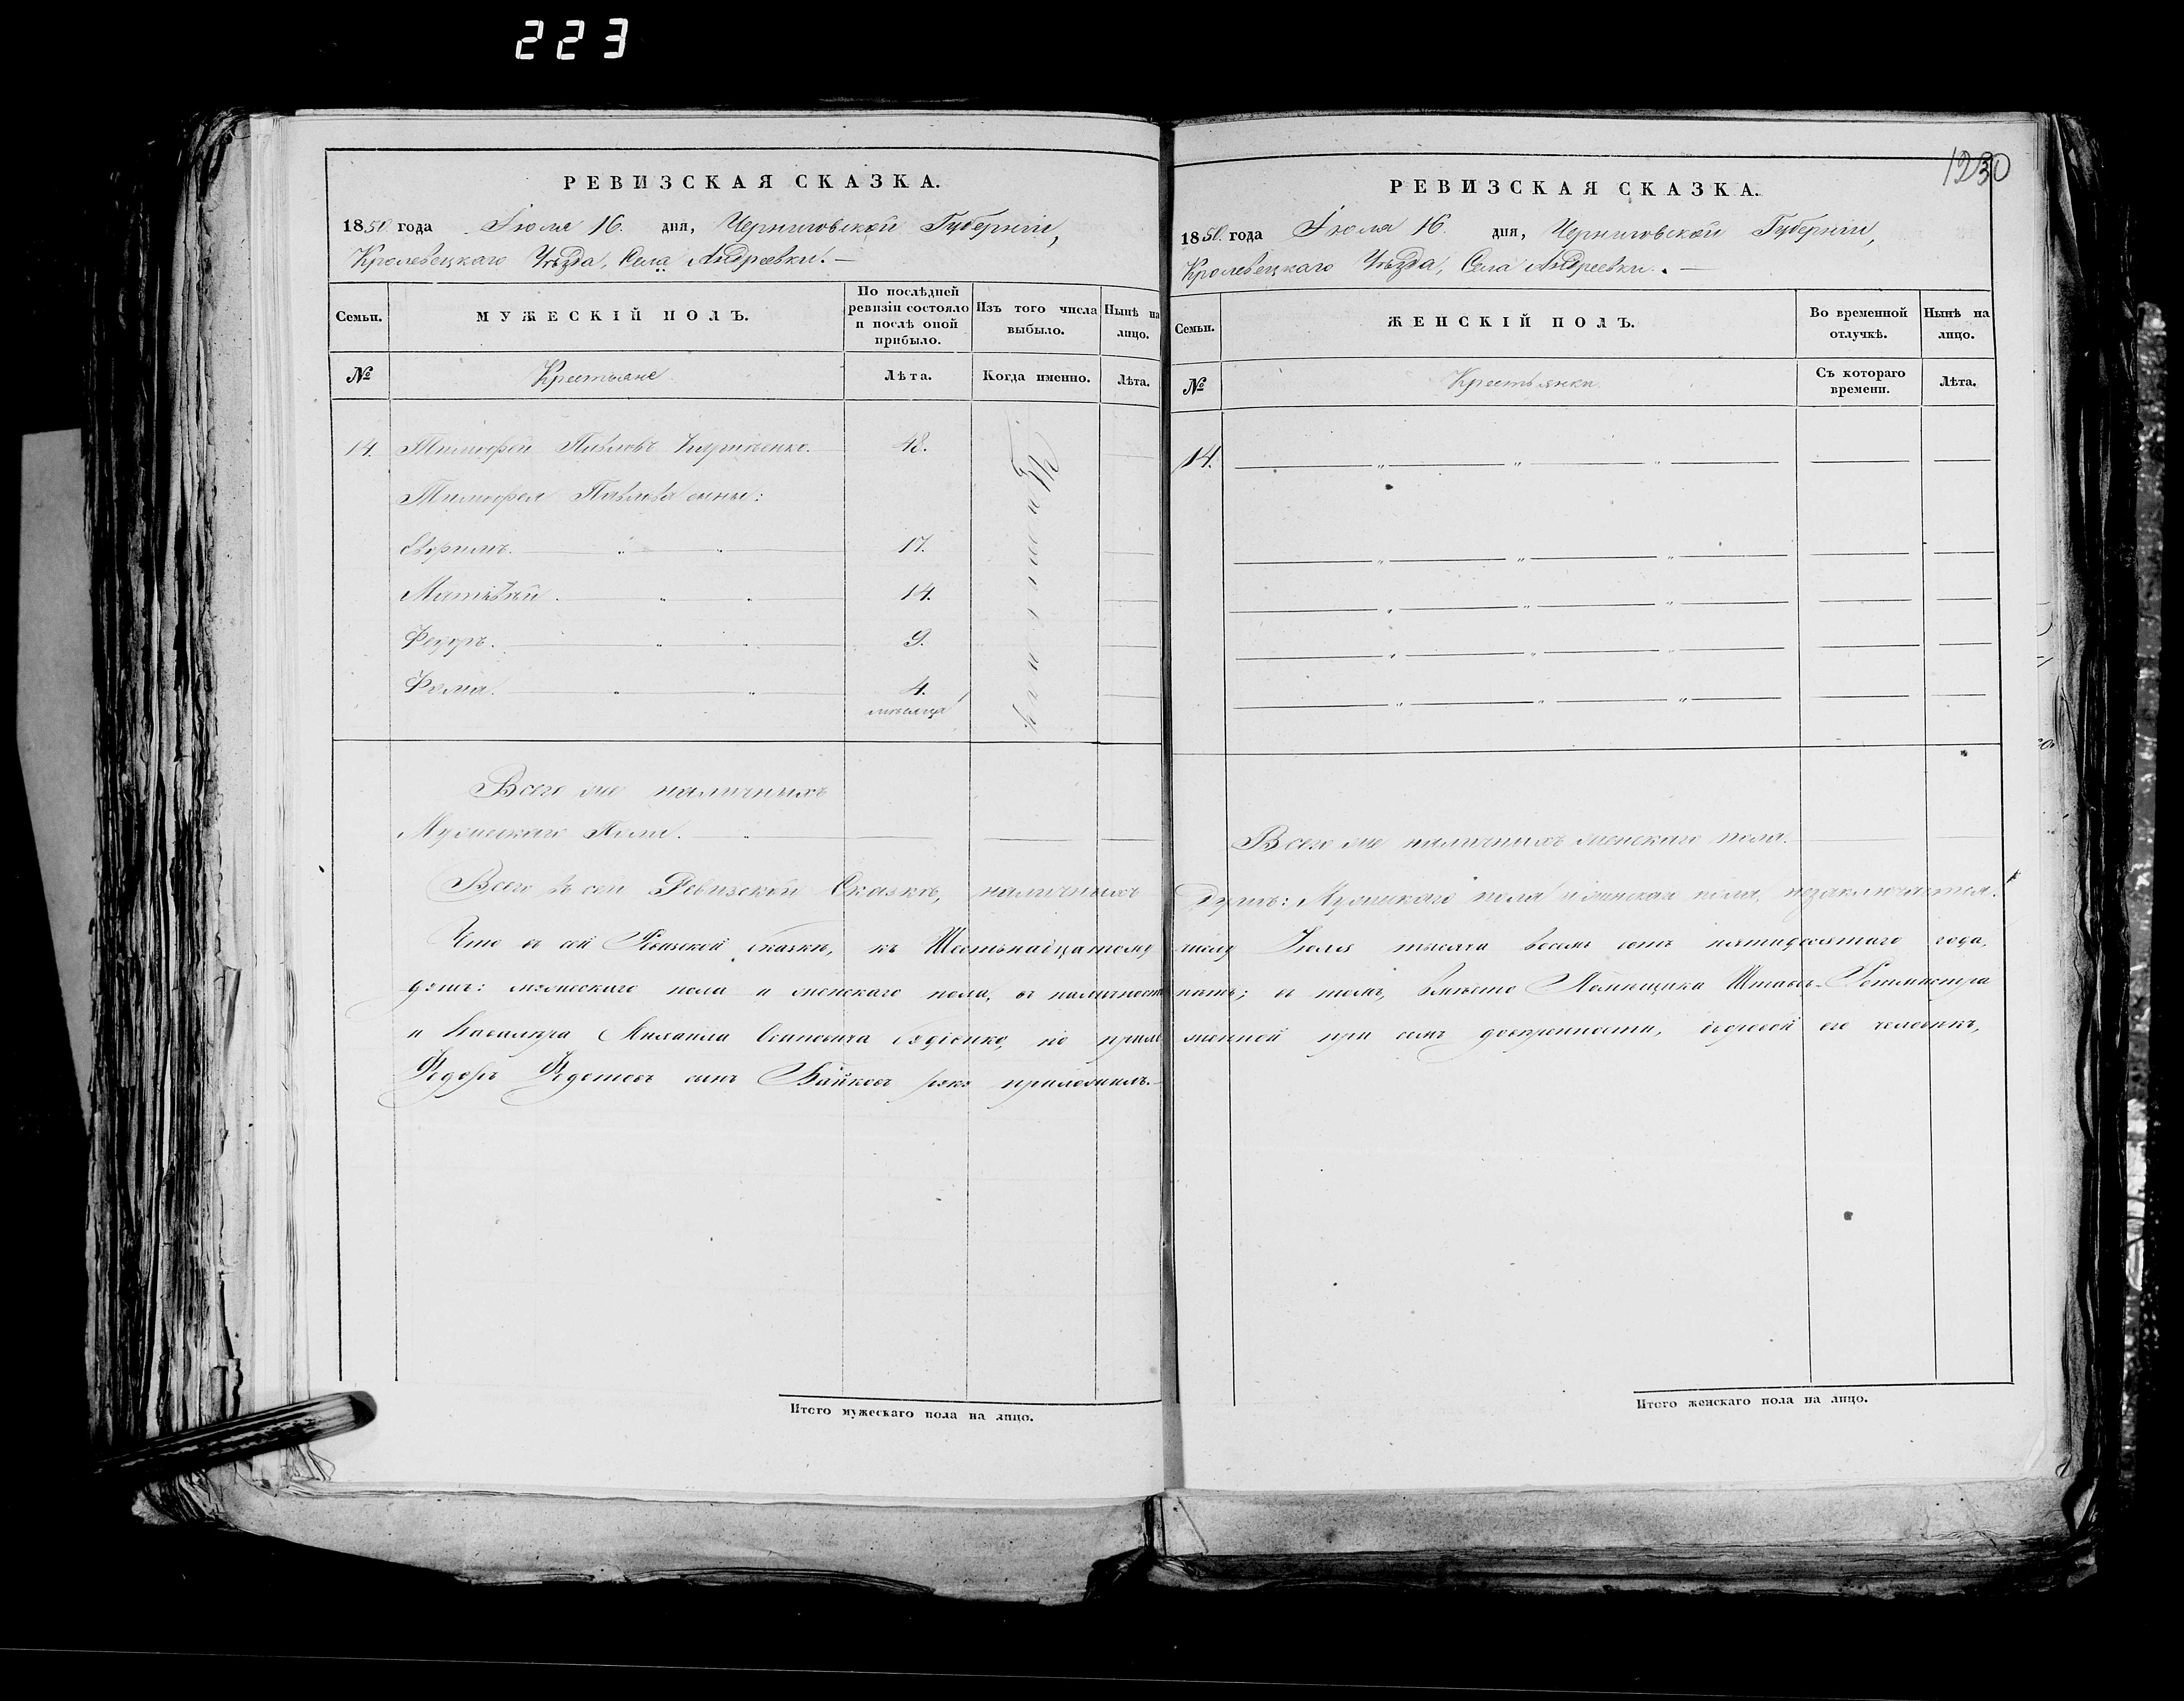 223
РЕВИЗСКАЯ СКАЗКА.
1850 года Іюля 16. дня, Черниговской Губерніи,
Кролевецкаго Уѣзда, Села Андреевки.
Семьи.
МУЖЕСКІЙ ПОЛЪ.
По послѣдней ревизіи состояло и послѣ оной прибыло.
Изъ того числа выбыло.
Нынѣ на лицо.
№
Крестьяне
Лѣта.
Когда именно.
Лѣта.
14. Тимофей Павловъ 48.
Тимофея Павлова сыны:
Ефримъ. 17.
Матвѣй. 14.
Федоръ. 9.
Фома. 4.
мѣсяца
Всего же наличныхъ
Мужескаго Пола.
Итого мужескаго пола на лицо.
1230
РЕВИЗСКАЯ СКАЗКА.
1850 года Іюля 16. дня, Черниговской Губерніи,
Кролевецкаго Уѣзда, Села Андреевки.
Семьи.
ЖЕНСКІЙ ПОЛЪ.
Во временной отлучкѣ.
Нынѣ на лицо.
№
Крестьянки
Съ котораго времени.
Лѣта.
14.
Всего же наличныхъ женскаго пола.
Всего въ сей Ревизской Сказкѣ, наличныхъ Душъ: Мужескаго пола и женскаго пола, незаключается.
Что въ сей Ревизской сказкѣ, къ Шестьнадцатому числу Іюля тысяча восемь сотъ пятидесятаго года,
душъ: мужескаго пола и женскаго пола, въ наличности нѣтъ; въ томъ, вмѣсто Помѣщика Штабсъ-Ротмистра
и Кавалера Михаила Осиповича Судіенко, по приложенной при семъ довѣренности, дворовой его человѣкъ,
Федоръ Федотовъ сынъ Байковъ руку приложилъ.
Итого женскаго пола на лицо.